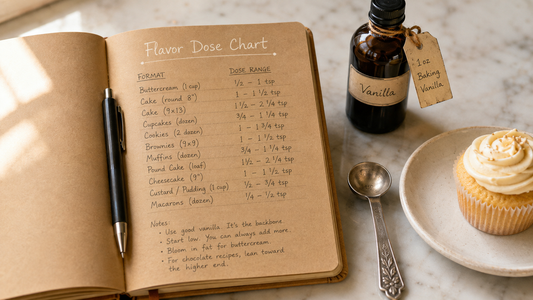 Flavor Dose Chart
FORMAT DOSE RANGE
Buttercream (1 cup) ½ – 1 tsp
Cake (round 8") 1 – 1 ½ tsp
Cake (9x13) 1 ½ – 2 ¼ tsp
Cupcakes (dozen) ¾ – 1 ¼ tsp
Cookies (2 dozen) 1 – 1 ¾ tsp
Brownies (9x9) 1 – 1 ½ tsp
Muffins (dozen) ¾ – 1 ¼ tsp
Pound Cake (loaf) 1 ½ – 2 ¼ tsp
Cheesecake (9") 1 – 1 ½ tsp
Custard / Pudding (1 cup) ½ – ¾ tsp
Macarons (dozen) ¼ – ½ tsp
Notes:
• Use good vanilla. It's the backbone
• Start low. You can always add more.
• Bloom in fat for buttercream.
• For chocolate recipes, lean toward
the higher end.
Vanilla
1 oz
Baking
Vanilla